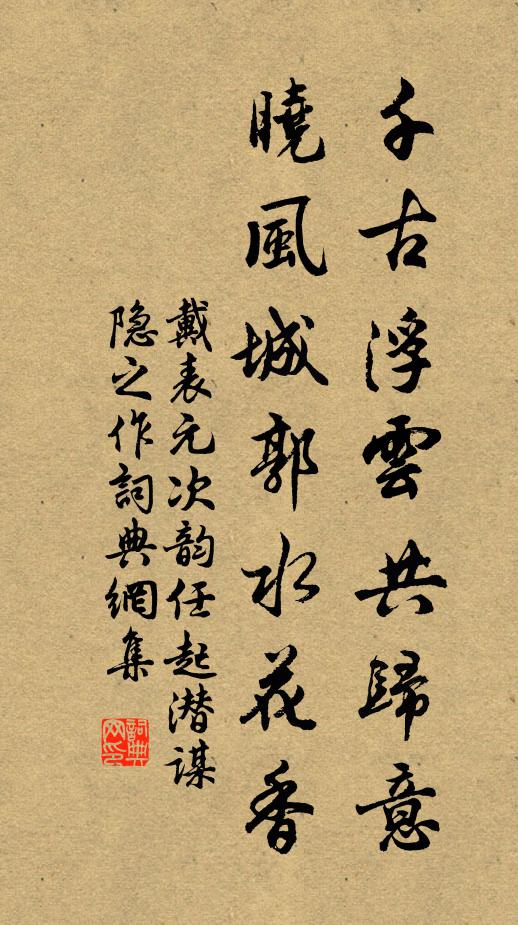 千古浮雲共歸意
曉風城郭水花香
戴表元次韵任起潜謀
隐之作詞典網集
詞典網印